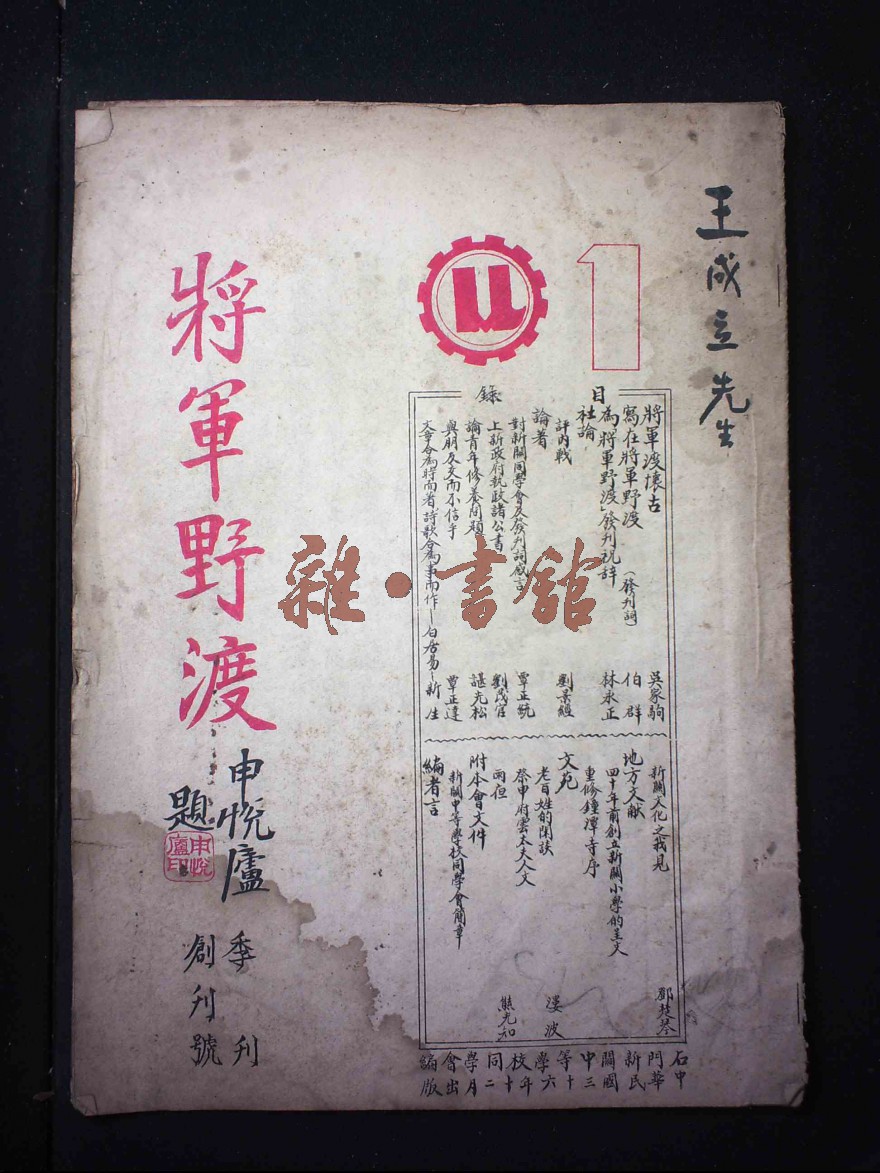 王成立先生
1
目錄
將軍渡懷古 吳家駒
寫在將軍野渡(發刊詞) 伯群
為「將軍野渡」發刊祝辭 林永正
社論
評內戰 劉景韞
論著
對新關同學會及發刊詞感言 覃正統
上新政府執政諸公書 劉茂官
論青年修養問題 諶先松
與朋友交而不信乎 覃正達
文章合為時而著,詩歌合為事而作—白居易—新生
新關文化之我見 鄧楚琴
地方文献
四十年前創立新關小學的呈文
重修鐘潭寺序
文苑
老百姓的閑談 漫波
祭申府雲太夫人文
雨夜 熊光和
附本會文件
新關中等學校同學會簡章
編者言
石門新關中等學校同學會編
中華民國三十六年十二月出版
將軍野渡
申悅廬題
申悅廬印
季刊
創刊號
雜·書館